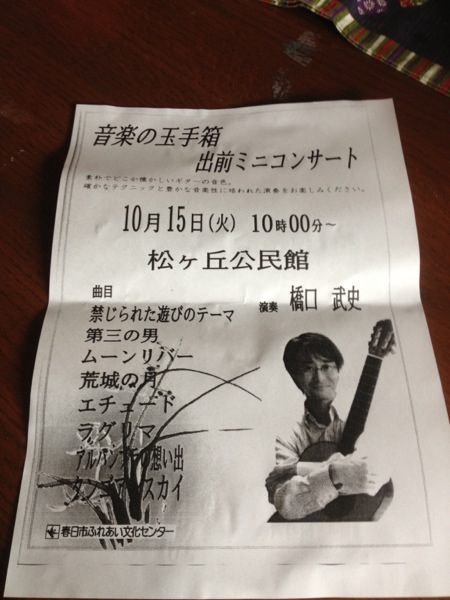 音楽の玉手箱
出前ミニコンサート
素朴でどこか懐かしいギターの音色。
確かなテクニックと豊かな音楽性に培われた演奏をお楽しみください。
10月15日(火) 10時00分~
松ヶ丘公民館
曲目
演奏 橋口 武史
禁じられた遊びのテーマ
第三の男
ムーンリバー
荒城の月
エチュード
ラグリマ
アルハンブラの想い出
タンゴアンスカイ
春日市ふれあい文化センター